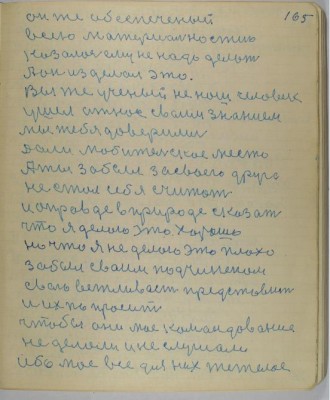 165
он же обеспеченый
всею материальностию
казалось ему не надо делат
А он из делал это.
Вы же ученый не наш человек
ушел от нас своим знанием
мы тебя доверили
дали любительское место
А ты забыл за своего друга
не стал себя считат
и оправде в природе сказат
что я делаю это хорошо
но что я не делаю это плохо
забыл своим подчиненом
свою вежливаст представит
и их по просит
чтобы они мое командование
не делали и не слушали
ибо мое все для них тежелое